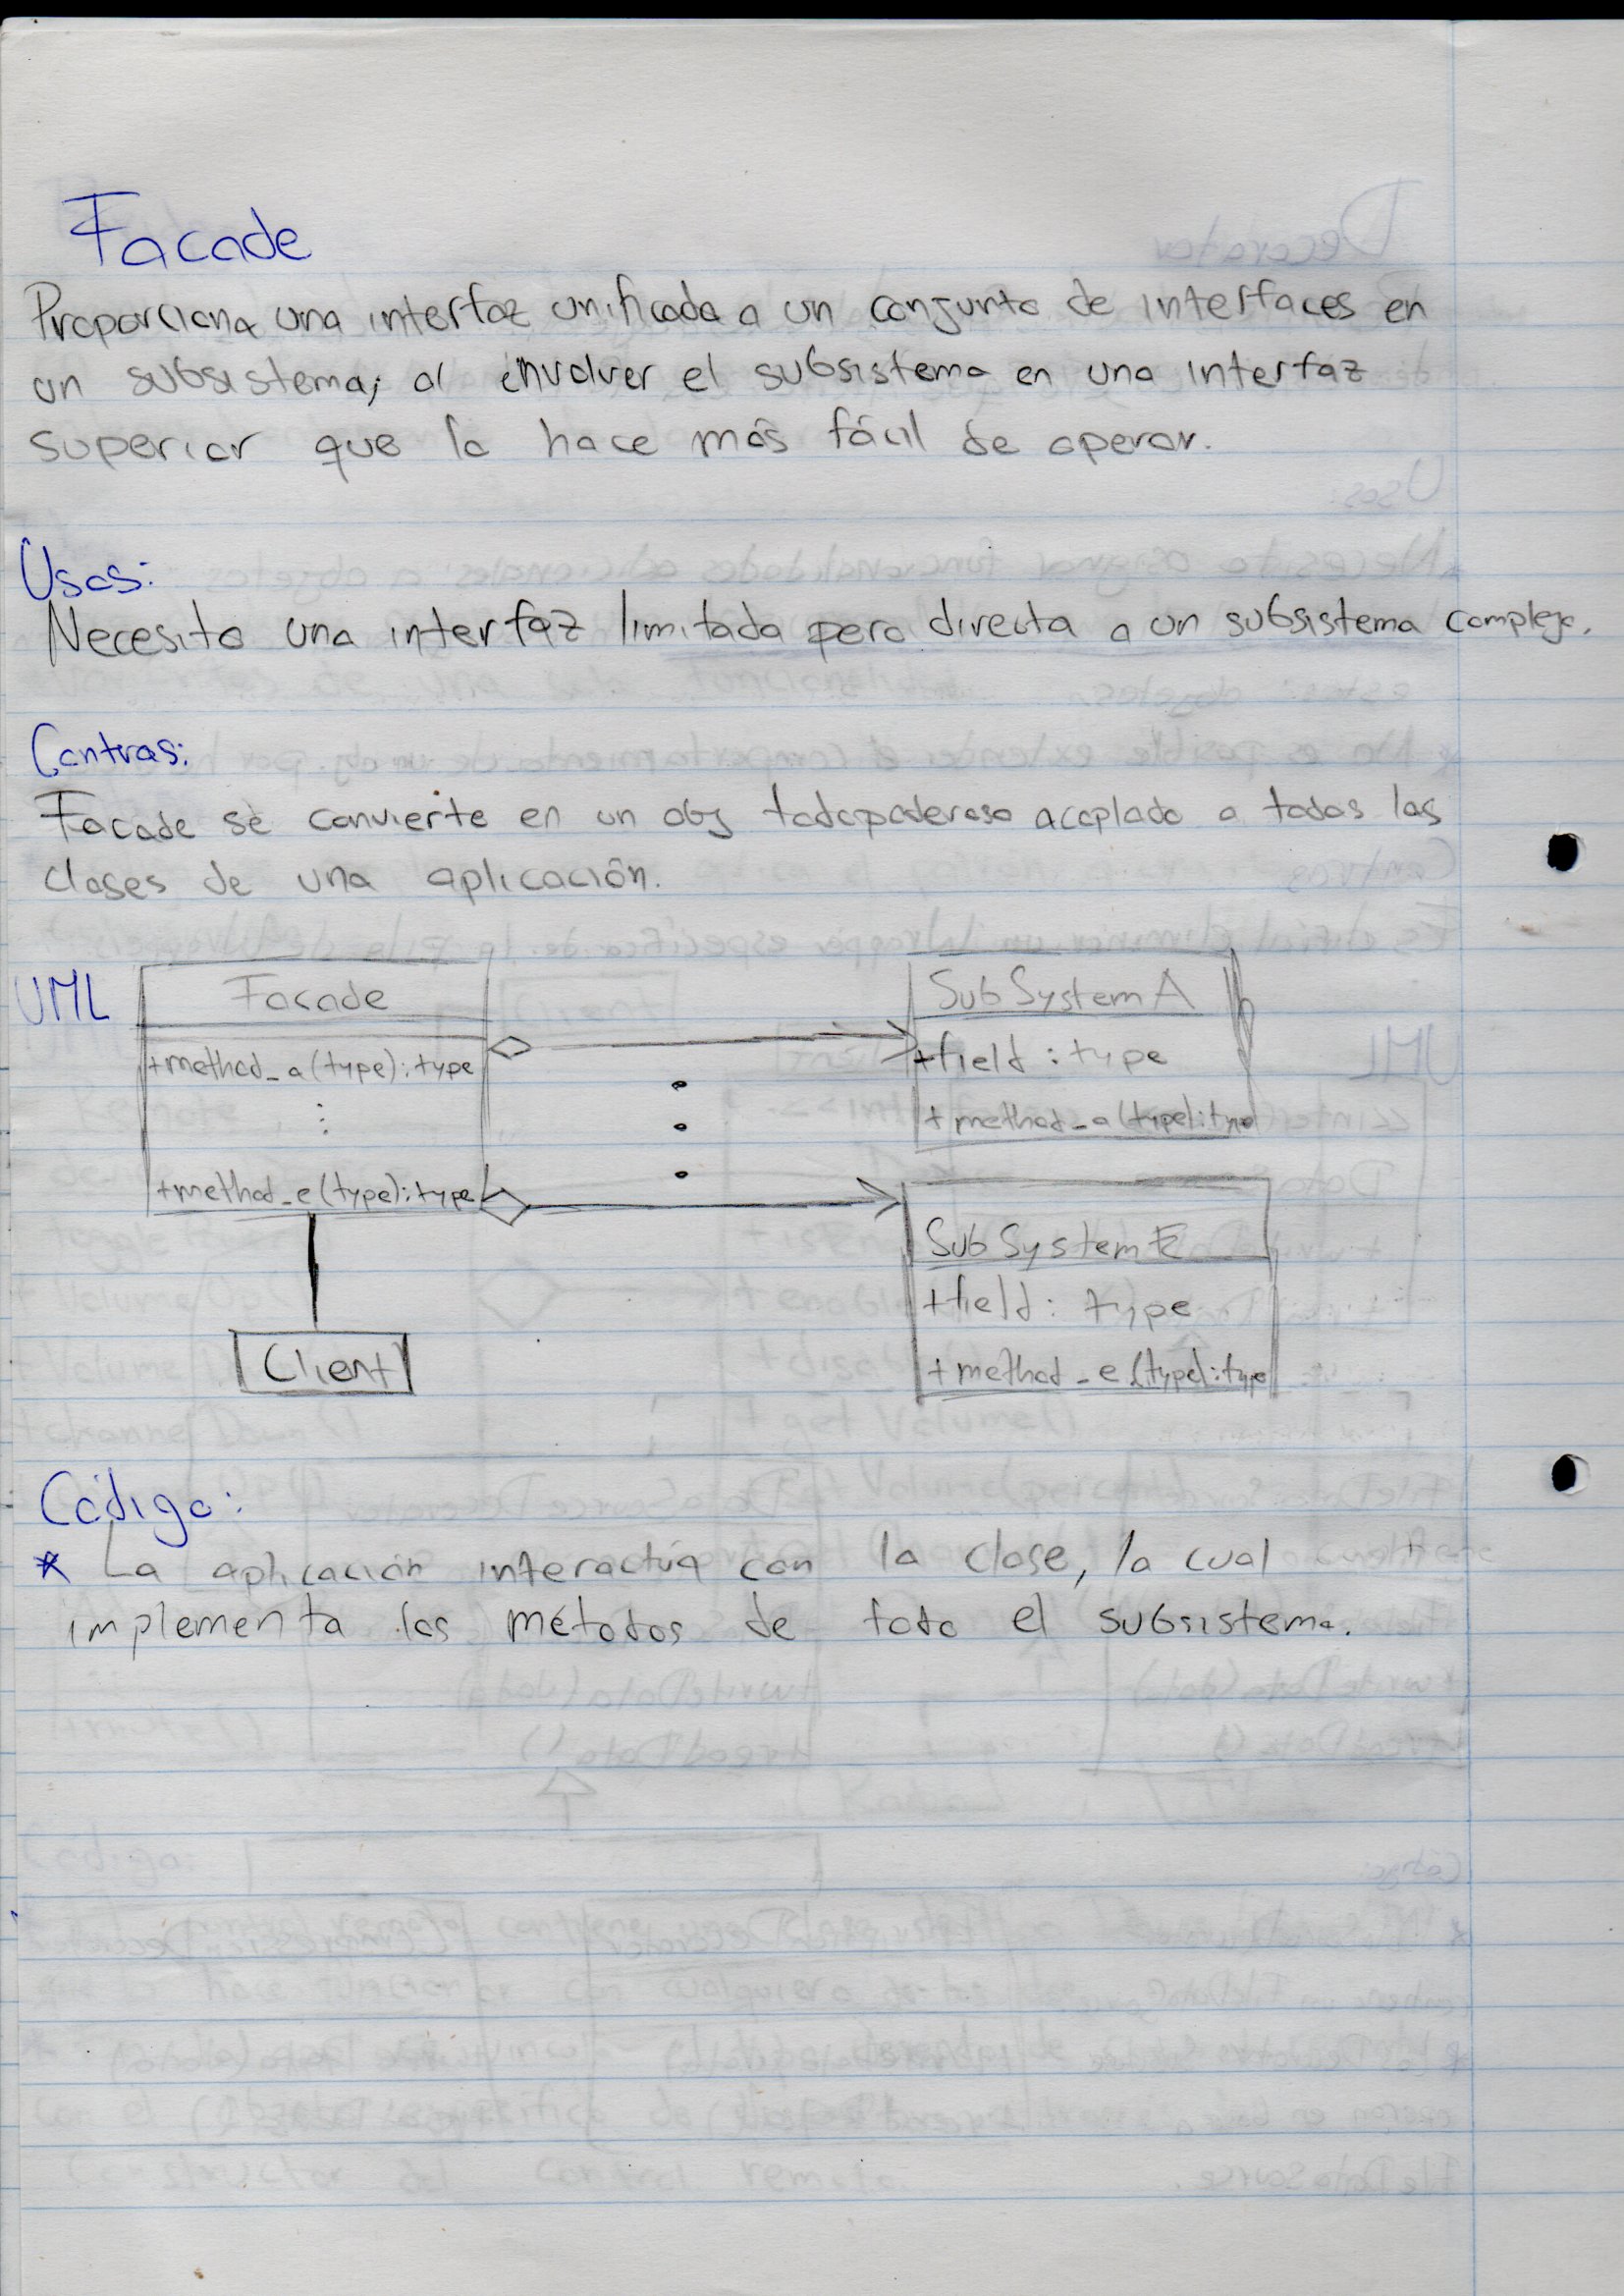 Facade
Proporciona una interfaz unificada a un conjunto de interfaces en
un subsistema, al envolver el subsistema en una interfaz
superior que lo hace más fácil de operar.
Usos:
Necesito una interfaz limitada pero directa a un subsistema complejo.
Contras:
Facade se convierte en un obj todopoderoso acoplado a todas las
clases de una aplicación.
UML
Facade
+method_a(type):type
⋮
+method_e(type):type
SubSystemA
+field: type
+method_a(type):type
SubSystemE
+field: type
+method_e(type):type
Client
Código:
* La aplicación interactúa con la clase, la cual
implementa los métodos de todo el subsistema.